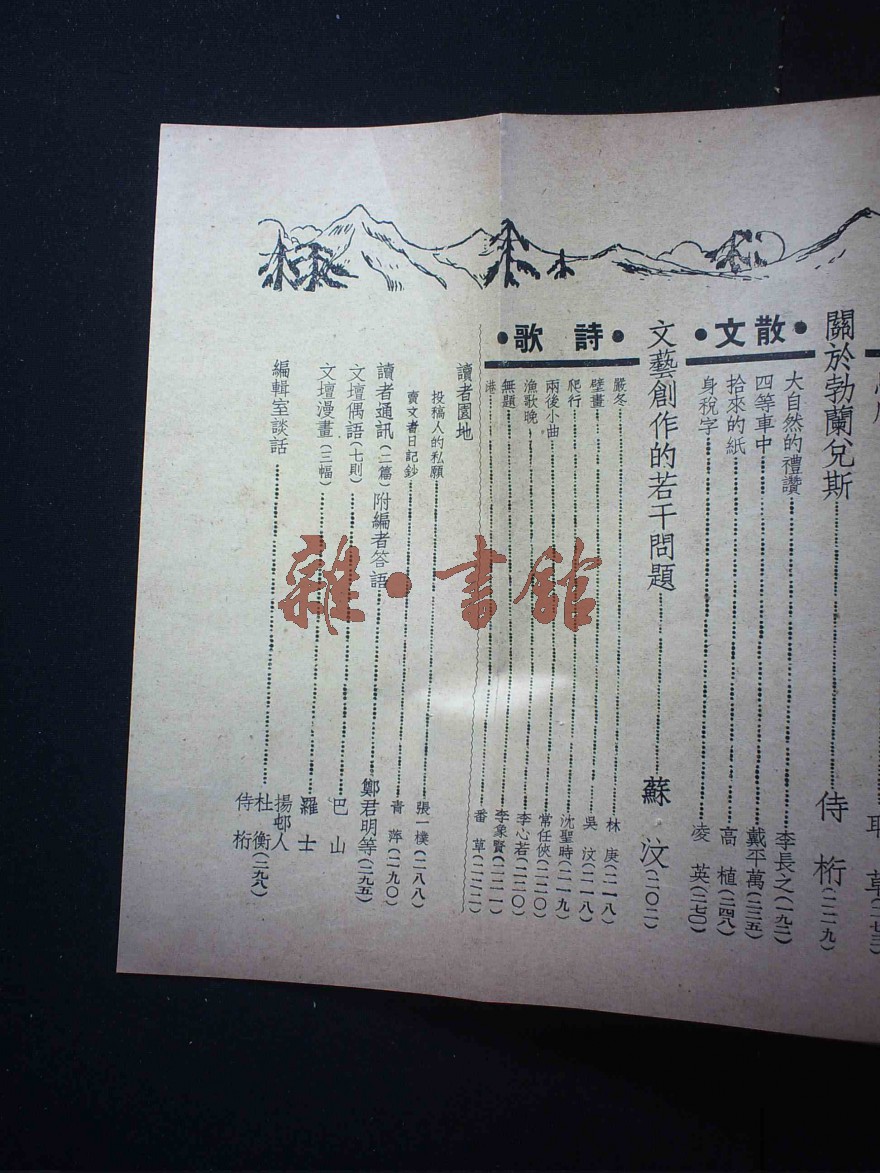 關於勃蘭兌斯……侍桁(二二九)
•散文•
大自然的禮讚……李長之(一九二)
四等車中……戴平萬(二三五)
拾來的紙……高植(二四八)
身稅字……凌英(二七〇)
文藝創作的若干問題……蘇汶(二〇二)
•詩歌•
嚴冬……林庚(二一八)
壁畫……吳汶(二一八)
爬行……沈聖時(二一九)
兩後小曲……常任俠(二二〇)
漁歌晚……李心若(二二〇)
無題……李象賢(二二一)
港……番草(二二二)
讀者園地
投稿人的私願……張一樸(二八八)
賣文者日記鈔……青萍(二九〇)
讀者通訊(二篇)附編者答語……鄭君明等(二九五)
文壇偶語(七則)……巴山
文壇漫畫(三幅)……羅士
編輯室談話……揚邨人 杜衡 侍桁(二九八)
雜•書館